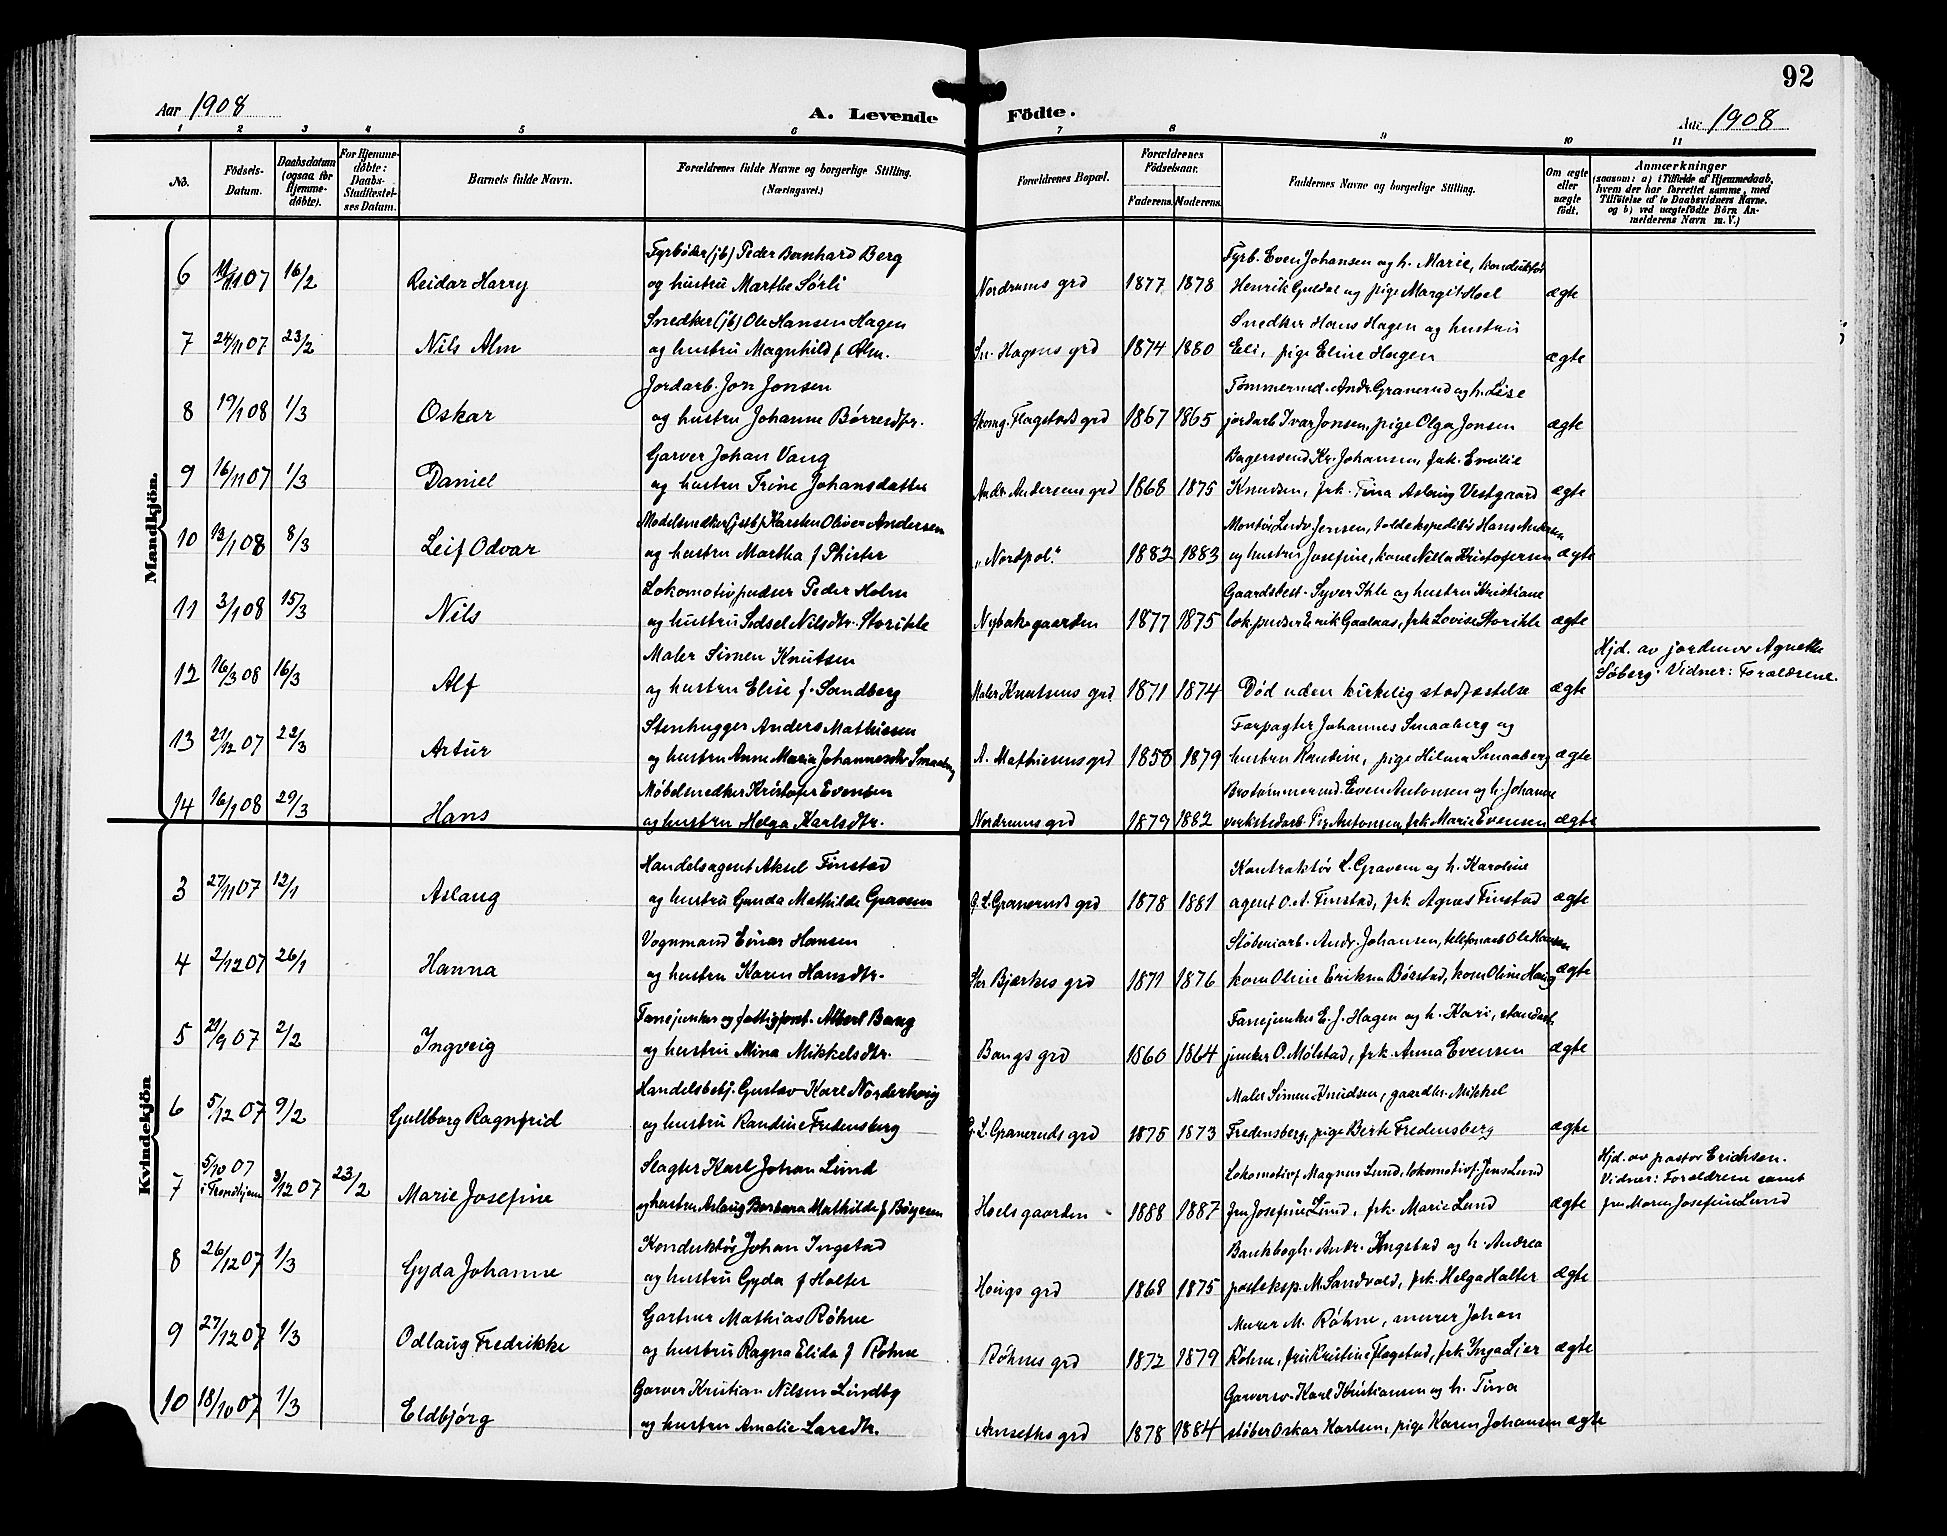 92
Aar 1908
A. Levende Födte.
Aar 1908
1 2 3 4 5 6 7 8 9 10 11
No.
Födsels-Datum.
Daabsdatum (ogsaa for Hjemme-döbte).
For Hjemme-döbte: Daabs-Stadfæstel-ses Datum.
Barnets fulde Navn.
Forældrenes fulde Navne og borgerlige Stilling. (Næringsvei.)
Forældrenes Bopæl.
Forældrenes Födselsaar.
Faderens. Moderens.
Faddernes Navne og borgerlige Stilling.
Om ægte eller uægte födt.
Anmærkninger
(saasom: a) i Tilfælde af Hjemmedaab,
hvem der har forrettet samme, med
Tilföielse af to Daabsvidners Navne.
og b) ved uægtefödte Börn An-
melderens Navn m. V.)
Mandkjön.
Fyrbøder (jb) Peder Bernhard Berg Fyrb. Even Johansen og h. Marie, konduktør
6 /11 07 16/2 Reidar Harry og hustru Marthe Sørli Nordrums grd 1877 1878 Henrik Guldal og pige Margit Hoel ægte
Snedker (jb) Ole Hansen Hagen Snedker Hans Hagen og hustru
7 24/11 07 23/2 Nils Alm og hustru Magnhild f. Alm. Sn. Hagens grd 1874 1880 Eli, pige Eline Hagen ægte
Jordarb. Jon Jonsen Tømmermd. Andr. Granerud og h. Lise
8 19/1 08 1/3 Oskar og hustru Johanne Børresdtr. Skomg. Flagstads grd 1867 1865 jordarb Ivar Jonsen, pige Olga Jonsen ægte
Garver Johan Vang Bagersvend Kr. Johansen, frk. Emilie
9 16/11 07 1/3 Daniel og hustru Trine Johansdatter Andr. Andersens grd 1868 1875 Knudsen, frk. Tina Aslaug Vestgaard ægte
Modelsnedker (jstb) Karsten Oliver Andersen Montør Ludv. Jensen, toldekspeditør Hans Andersen
10 12/1 08 8/3 Leif Odvar og hustru Martha f Phister „Nordpol" 1882 1883 og hustru Josefine, kone Nilla Kristofersen ægte
Lokomotivpudser Peder Holm Gaardsbest. Syver Ihle og hustru Kristiane
11 3/1 08 15/3 Nils og hustru Sedsel Nilsdtr. Storihle Nybakgaarden 1877 1875 lok.pudser Erik Gaalaas, frk Lovise Storihle ægte
Maler Simen Knutsen Hjd. av jordemor Agnethe
12 16/3 08 16/3 Alf og hustru Elise f. Sandberg Maler Knutsens grd 1871 1874 Død uden kirkelig stadfæstelse ægte Søberg. Vidner: Forældrene.
Stenhugger Anders Mathiesen Forpagter Johannes Smaaberg og
13 21/12 07 22/3 Artur og hustru Anne Maria Johannesdtr Smaaberg A. Mathiesens grd 1858 1879 hustru Randine, pige Hilma Smaaberg ægte
Møbelsnedker Kristofer Evensen Brotømmermd. Even Antonsen og h. Johanne
14 16/1 08 29/3 Hans og hustru Helga Karlsdtr. Nordrums grd 1879 1882 verkstedarb. Antonsen, frk Marie Evensen ægte
Kvindekjön
Handelsagent Aksel Finstad Kontraktør L. Gravem og h. Karoline
3 27/11 07 12/1 Aslaug og hustru Gunda Mathilde Gravem G. L. Graneruds grd 1878 1881 agent O. A. Finstad, frk Agnes Finstad ægte
Vognmand Einar Hansen Støberiarb. Andr. Johansen, telefonarb Ole Hansen
4 2/12 07 26/1 Hanna og hustru Karen Hansdtr. Bjerkes grd 1871 1876 kone Oline Eriksen Børstad, kone Oline Haug ægte
Fanejunker og fattigforst. Albert Bang Fanejunker E. J. Hagen og h. Kari, standart
5 21/9 07 2/2 Ingveig og hustru Mina Mikkelsdtr. Bangs grd 1860 1864 junker O. Mølstad, frk. Anna Evensen ægte
Handelsbetj. Gustav Karl Norderhaug Maler Simen Knudsen, gaardbr. Mikkel
6 5/12 07 9/2 Gullborg Ragnfrid og hustru Randine Fredensberg G. L. Graneruds grd 1875 1873 Fredensberg, pige Berte Fredensberg ægte
5/10 07 Slagter Karl Johan Lund Lokomotivf Magnus Lund, lokomotivf. Jens Lund Hjd. av pastor Erichsen.
7 i Trondhjem 3/12 07 23/2 Marie Josefine og hustru Aslaug Barbara Mathilde f Børgesen Hoels gaarden 1888 1887 fru Josefine Lund, frk. Marie Lund ægte Vidner: Forældrene samt
fru Maren Josefine Lund
Konduktør Johan Ingstad Bankbogh. Andr. Ingstad og h. Andrea
8 26/12 07 1/3 Gyda Johanne og hustru Gyda f Holter Haugs grd 1868 1875 posteksp. M. Sandvold, frk. Helga Holter ægte
Gartner Mathias Røhne Murer M. Røhne, murer Johan
9 27/12 07 1/3 Odlaug Fredrikke og hustru Ragna Elida f Røhne Røhnes grd 1872 1879 Røhne, fru Kristine Flagstad, frk. Inga Lier ægte
Garver Kristian Nilsen Lundby Garversv. Karl Kristiansen og h. Tina
10 18/10 07 1/3 Eldbjörg og hustru Amalie Larsdtr. Arnseths grd 1878 1884 støber Oskar Karlsen, pige Karen Johansen ægte